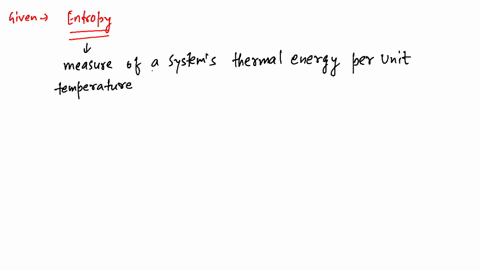 Given → Entropy
↓
measure of a system's thermal energy per unit
temperature